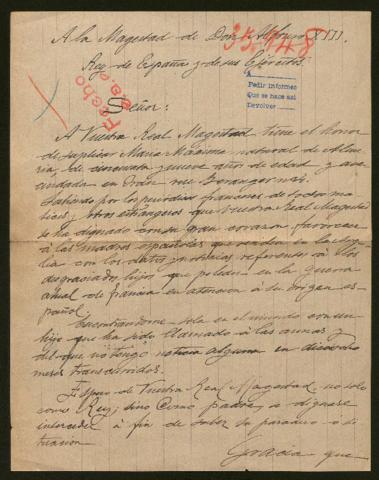 A la Magestad de Don Alfonso XIII.
35.148
Rey de España y de sus Ejércitos.
Fecho
Pedir informes
Que se hace así
Devolver
Señor:
A Vuestra Real Magestad tiene el honor
de suplicar Maria Maxima natural de Alme
ria, de cincuenta y nueve años de edad y ave
cindada en Orán rue Beranger nº
Sabiendo por los periódicos franceses de todos ma
tices y otros extrangeros que Vuestra Real Magestad
se ha dignado con su gran corazon favorecer
á las madres españolas que residen en la Arge
lia con los datos y noticias referentes á los
desgraciados hijos que pelean en la guerra
actual de francia en atencion á su origen es-
pañol.
Encontrandome sola en el mundo con un
hijo que ha sido llamado á las armas y
del que no tengo noticia alguna en
meses transcurridos.
Espero de Vuestra Real Magestad, no solo
como Rey, sino como padre, se dignase
interceder á fin de saber su paradero o si
tuacion
Gracia que